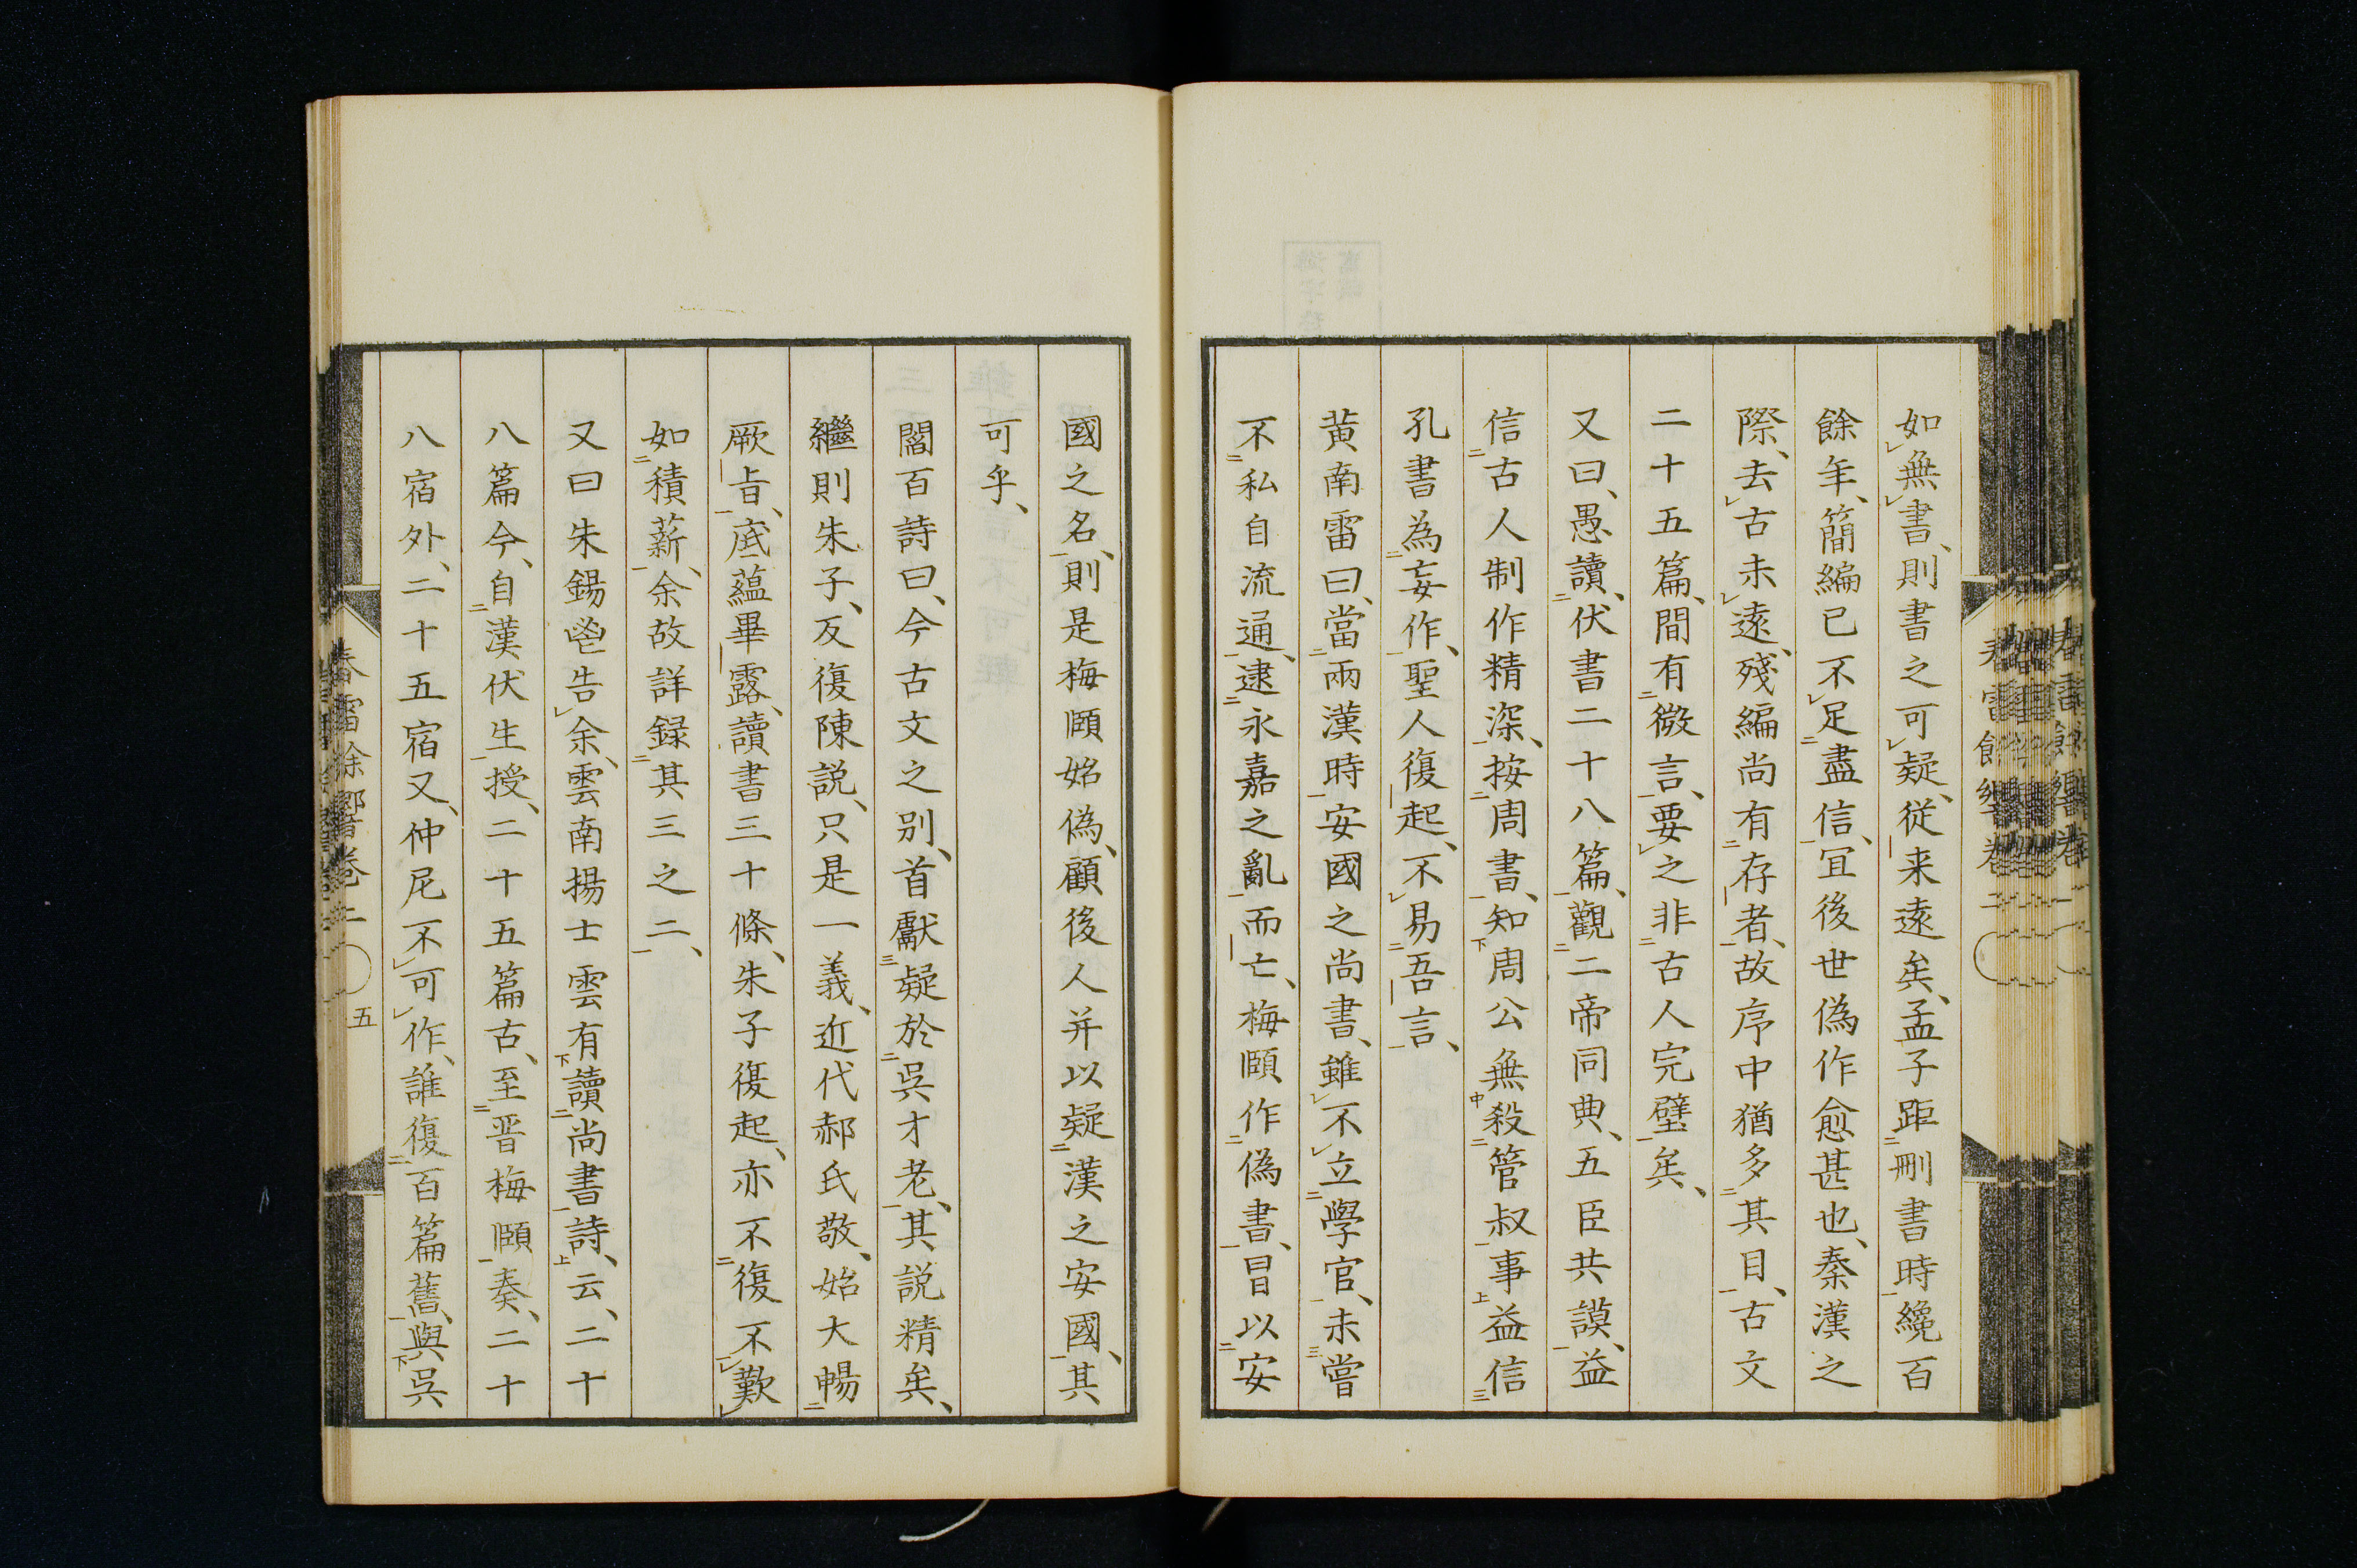 如無書、則書之可疑、従来遠矣、孟子距刪書時、纔百
餘年、簡編已不足盡信、冝後世偽作愈甚也、秦漢之
際、去古未遠、殘編尚有存者、故序中猶多其目、古文
二十五篇、間有微言、要之非古人完璧矣、
又曰、愚讀伏書二十八篇、觀二帝同典、五臣共謨、益
信古人制作精深、按周書、知周公無殺管叔事益信
孔書為妄作、聖人復起、不易吾言、
黄南雷曰、當兩漢時安國之尚書、雖不立學官、未嘗
不私自流通、逮永嘉之亂而亡、梅頤作偽書、冒以安
國之名、則是梅頤始偽、顧後人并以疑漢之安國、其
可乎、
閻百詩曰、今古文之別、首獻疑於呉才老、其説精矣、
繼則朱子、反復陳説、只是一義、近代郝氏敬、始大暢
厥旨、底蘊畢露、讀書三十條、朱子復起、亦不復不歎
如積薪、余故詳録其三之二、
又曰朱錫鬯告余、雲南揚士雲有讀尚書詩、云、二十
八篇今、自漢伏生授、二十五篇古、至晋梅頤奏、二十
八宿外、二十五宿又、仲尼不可作、誰復百篇舊、與呉
春雷餘響巻二
五